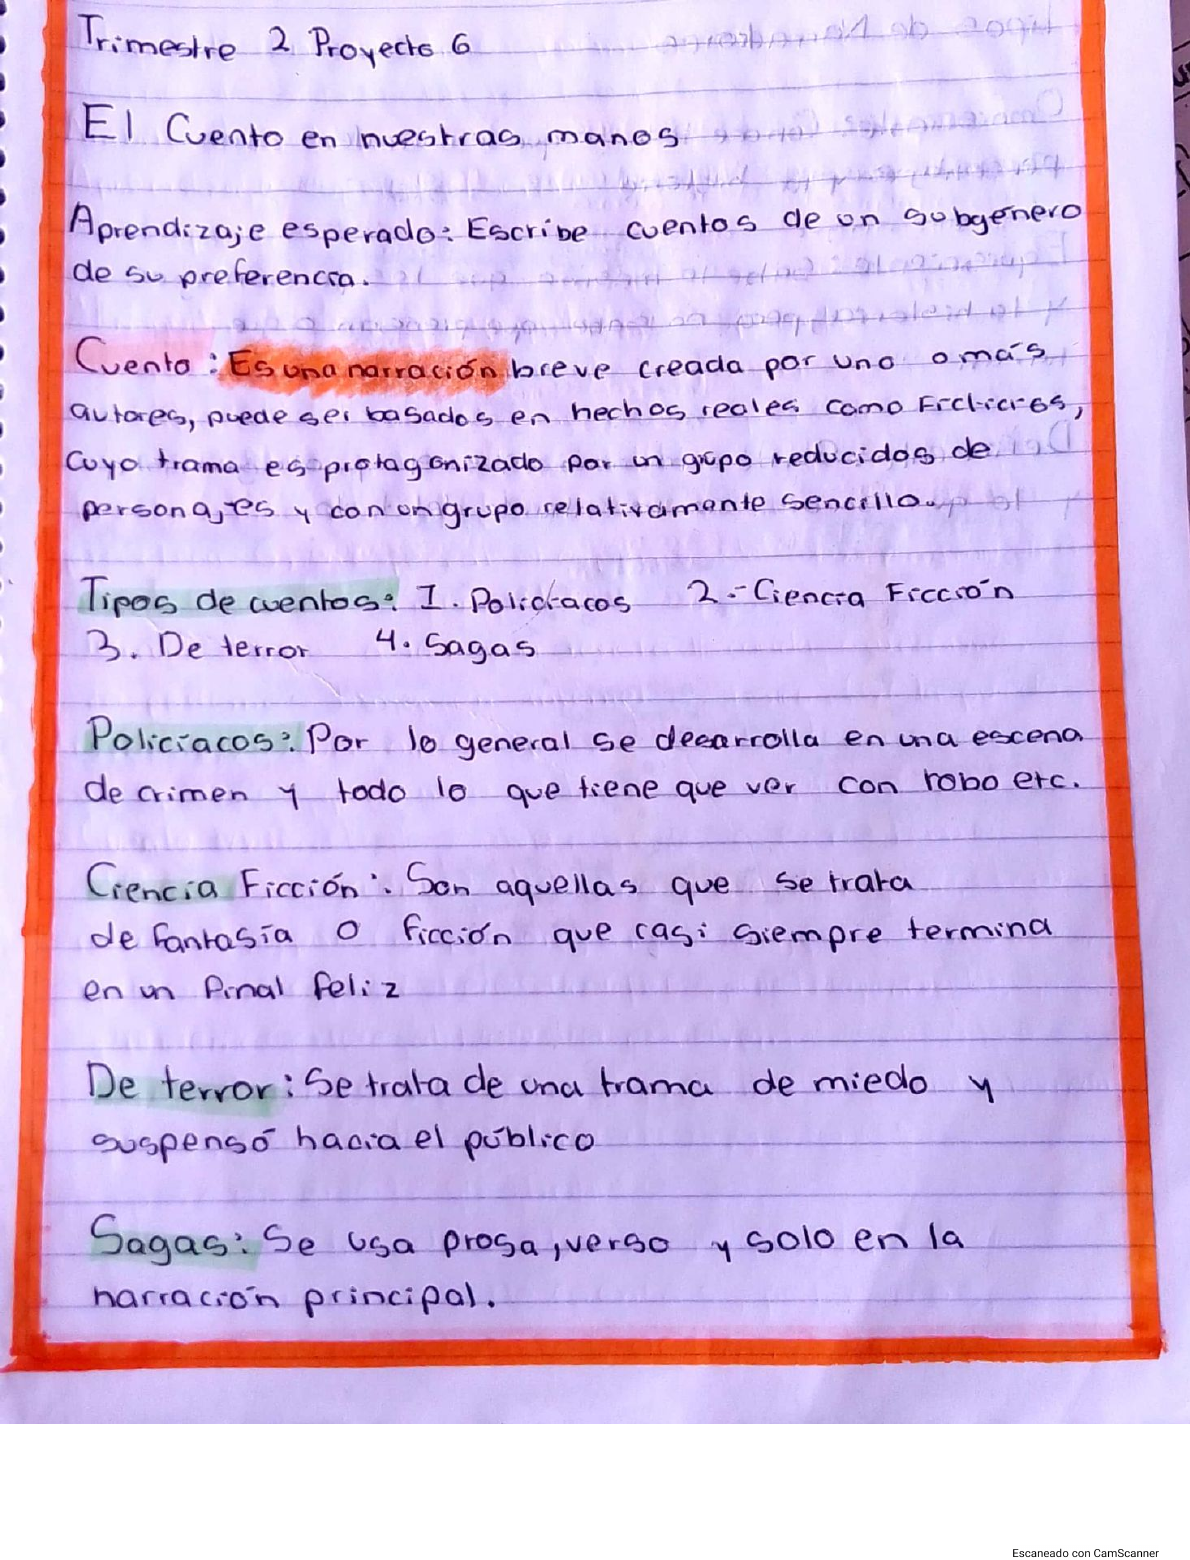 Trimestre 2 Proyecto 6
El Cuento en nuestras manos
Aprendizaje esperado: Escribe cuentos de un subgénero
de su preferencia.
Cuento: Es una narración breve creada por uno o más
autores, puede ser basados en hechos reales como Ficticios,
cuyo trama es protagonizado por un grupo reducidos de
personajes y con un grupo relativamente sencillo.
Tipos de cuentos: 1. Policíacos 2.- Ciencia Ficción
3. De terror 4. Sagas
Policíacos: Por lo general se desarrolla en una escena
de crimen y todo lo que tiene que ver con robo etc.
Ciencia Ficción: Son aquellas que se trata
de fantasía o ficción que casi siempre termina
en un final feliz
De terror: Se trata de una trama de miedo y
suspensó hacia el público
Sagas: Se usa prosa, verso y solo en la
narración principal.
Escaneado con CamScanner